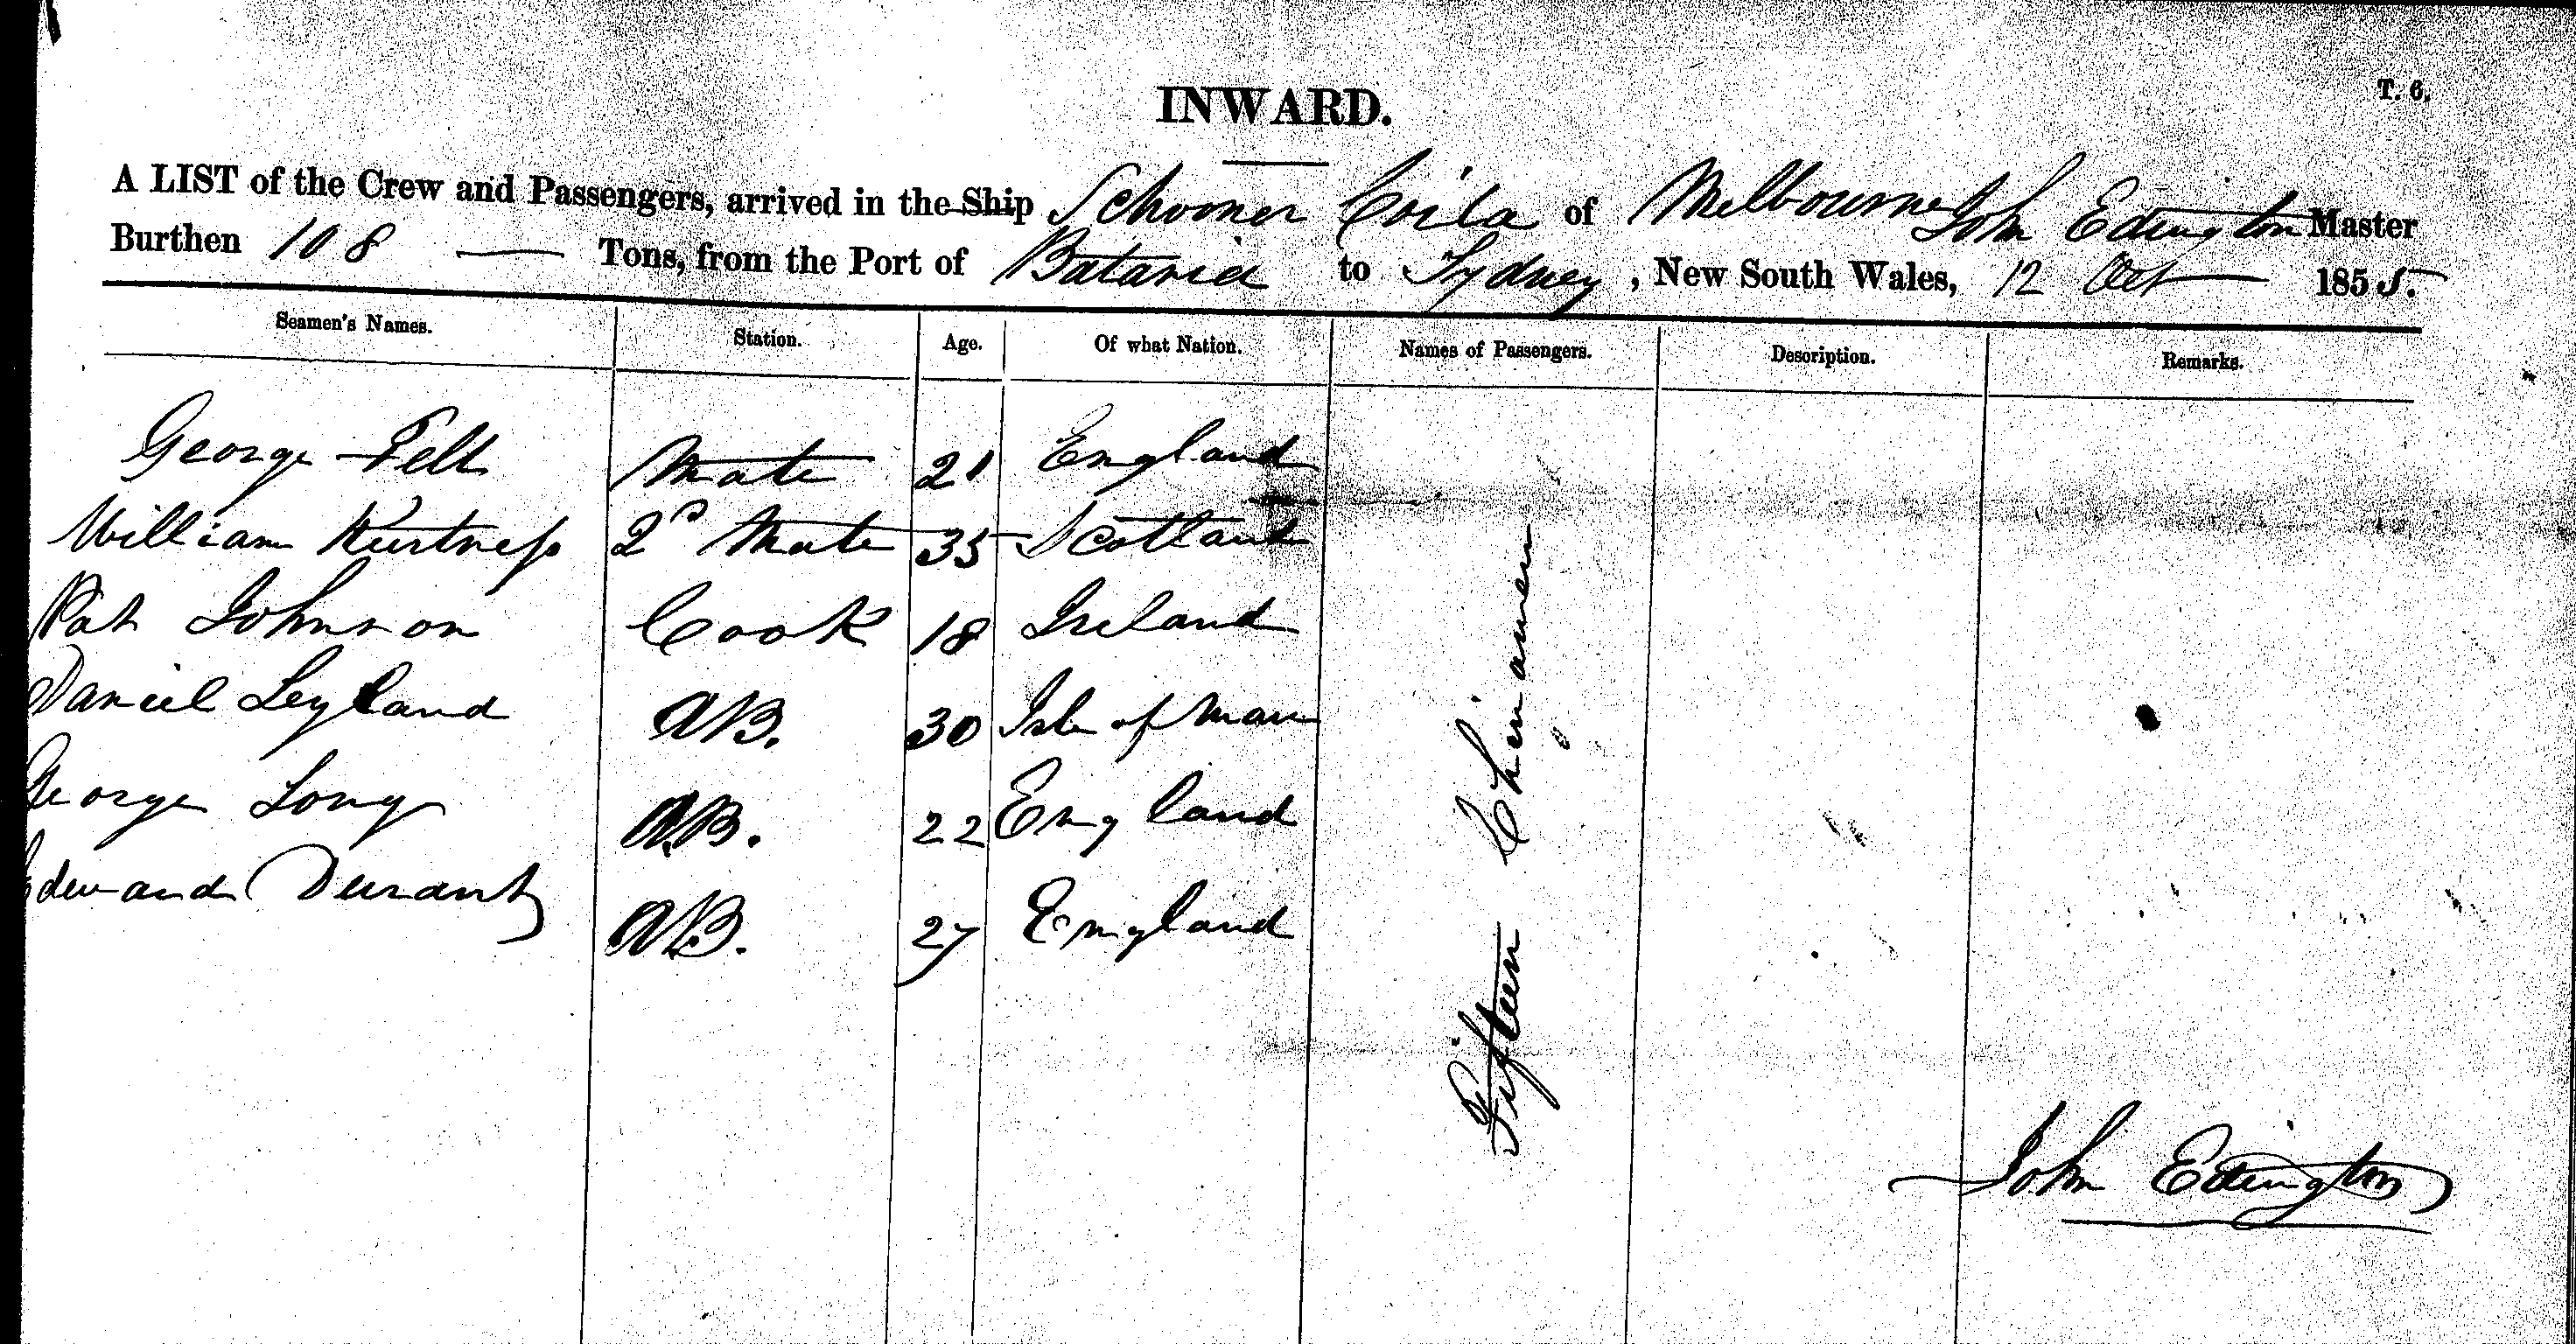 T. 6.
INWARD.
A LIST of the Crew and Passengers, arrived in the Ship Schooner Coila of Melbourne John Edington Master
Burthen 108 — Tons, from the Port of Batavia to Sydney, New South Wales, 12 Oct 1855.
Seamen's Names. Station. Age. Of what Nation. Names of Passengers. Description. Remarks.
George Fell Mate 21 England
William 2d Mate 35 Scotland
Pat Johnson Cook 18 Ireland
Daniel Leyland AB. 30 Isle of Man
George Long AB. 22 England
Edward Durant AB. 27 England
Fifteen Chinamen
John Edington